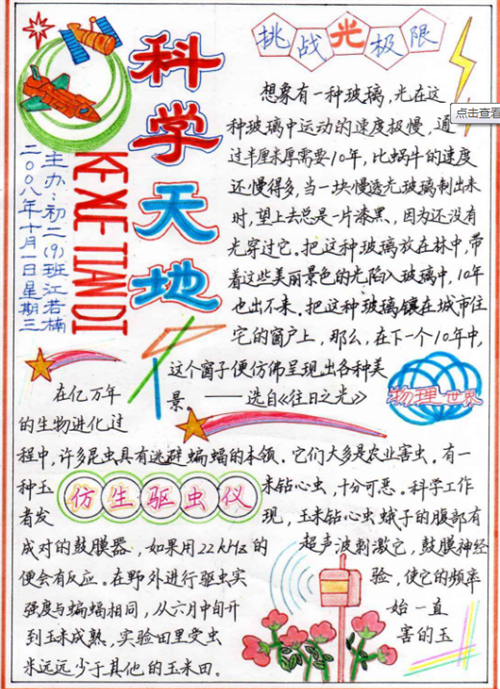 科学天地
KE XUE TIAN DI
主办：初二(9)班江若楠
二〇〇八年十月一日星期三
挑战光极限
想象有一种玻璃，光在这
种玻璃中运动的速度极慢，通
过半厘米厚需要10年，比蜗牛的速度
还慢得多，当一块慢透光玻璃制出来
时，望上去总是一片漆黑，因为还没有
光穿过它。把这种玻璃放在林中，带
着这些美丽景色的光陷入玻璃中，10年
也出不来。把这种玻璃镶在城市住
宅的窗户上，那么，在下一个10年中，
这个窗子便仿佛呈现出各种美
景 ——选自《往日之光》
点击查看
物理世界
仿生驱虫仪
在亿万年
的生物进化过
程中，许多昆虫具有逃避蝙蝠的本领。它们大多是农业害虫，有一
种玉米钻心虫，十分可恶。科学工作
者发现，玉米钻心虫蛾子的腹部有
成对的鼓膜器，如果用22kHz的超声波刺激它，鼓膜神经
便会有反应。在野外进行驱虫实验，使它的频率
强度与蝙蝠相同，从六月中旬开始一直
到玉米成熟，实验田里受虫害的玉
米远远少于其他的玉米田。